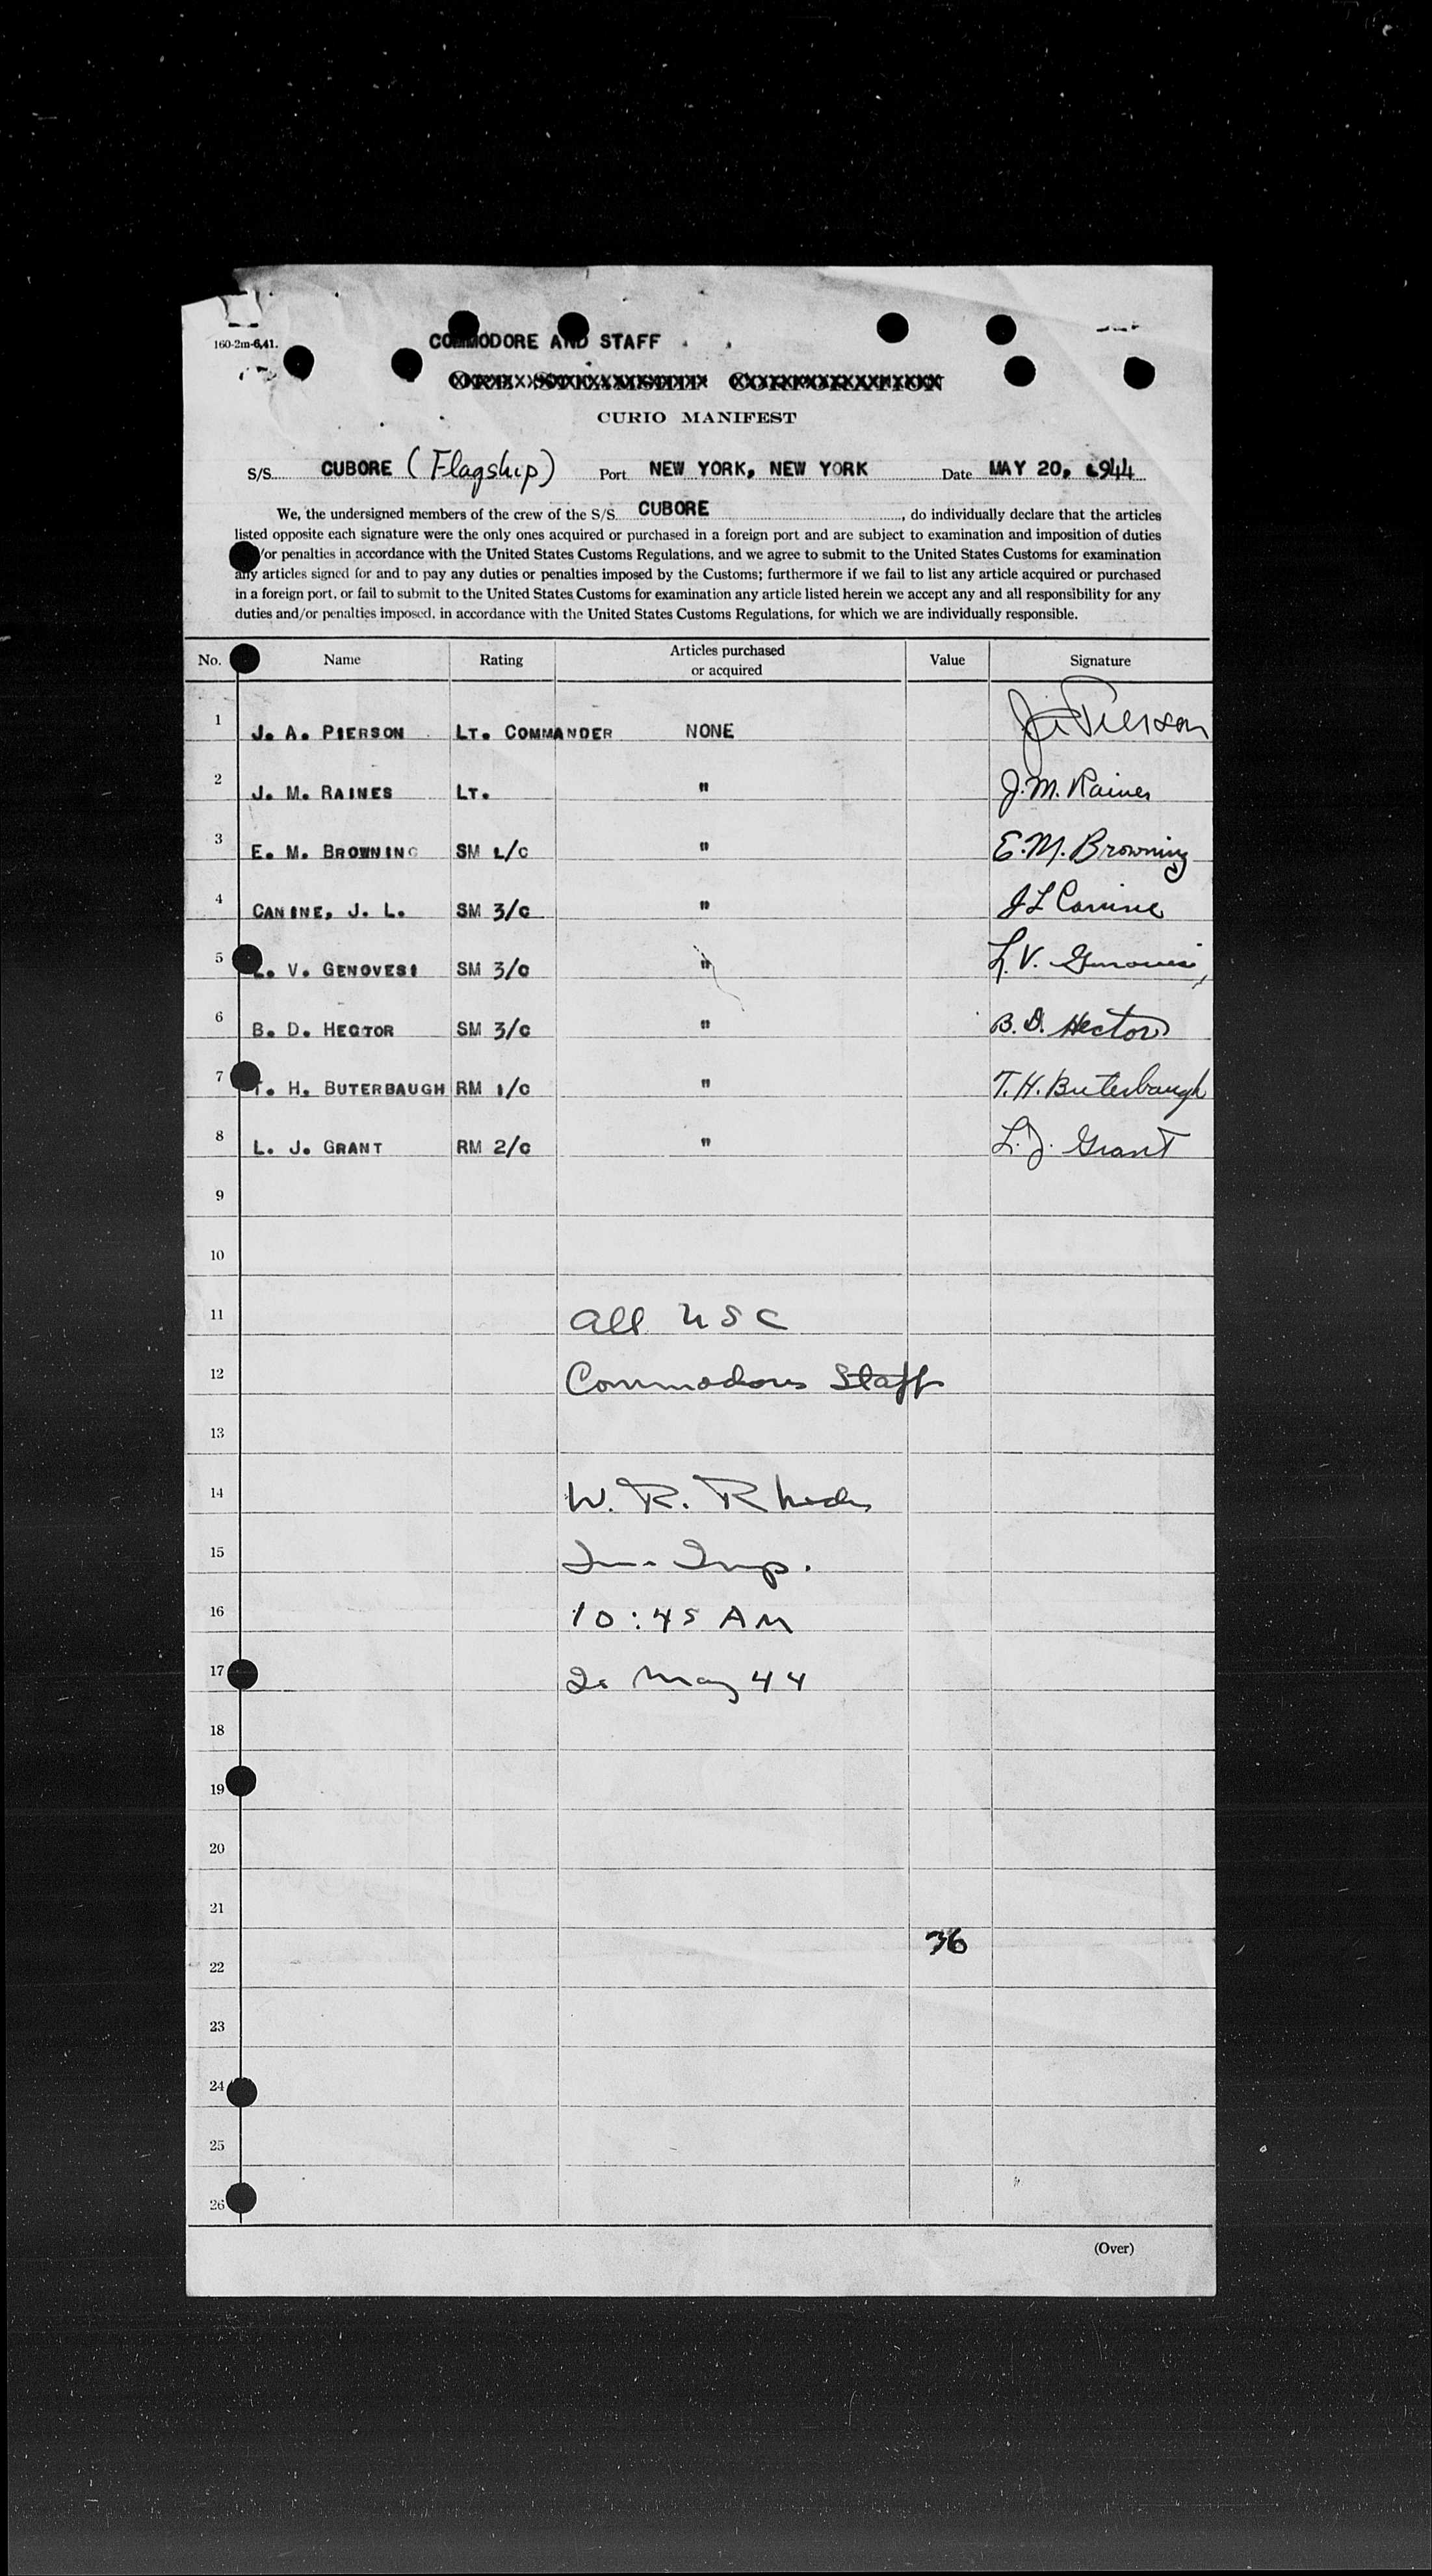 160-2m-6,41.
COMMODORE AND STAFF
CURIO MANIFEST
S/S CUBORE (Flagship) Port NEW YORK, NEW YORK Date MAY 20, 1944
We, the undersigned members of the crew of the S/S. CUBORE, do individually declare that the articles
listed opposite each signature were the only ones acquired or purchased in a foreign port and are subject to examination and imposition of duties
/or penalties in accordance with the United States Customs Regulations, and we agree to submit to the United States Customs for examination
any articles signed for and to pay any duties or penalties imposed by the Customs; furthermore if we fail to list any article acquired or purchased
in a foreign port, or fail to submit to the United States Customs for examination any article listed herein we accept any and all responsibility for any
duties and/or penalties imposed, in accordance with the United States Customs Regulations, for which we are individually responsible.
No. Name Rating Articles purchased or acquired Value Signature
1 J. A. PIERSON LT. COMMANDER NONE J A Pierson
2 J. M. RAINES LT. " J. M. Raines
3 E. M. BROWNING SM 1/C " E. M. Browning
4 CANINE, J. L. SM 3/C " J L Canine
5 L. V. GENOVESI SM 3/C " L. V. Genovesi
6 B. D. HECTOR SM 3/C " B. D. Hector
7 T. H. BUTERBAUGH RM 1/C " T. H. Buterbaugh
8 L. J. GRANT RM 2/C " L. J. Grant
9
10
11 all USC
12 Commodores Staff
13
14 W. R. Rhodes
15 Imm. Insp.
16 10:45 AM
17 20 May 44
18
19
20
21
36
22
23
24
25
26
(Over)